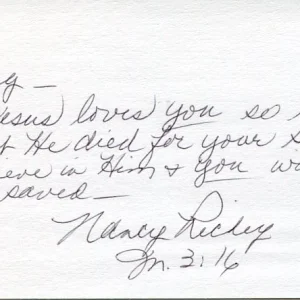 y —
esus loves you so
t He died for your s
eve in Him & you w
saved —
Nancy Richey
Jn. 3:16